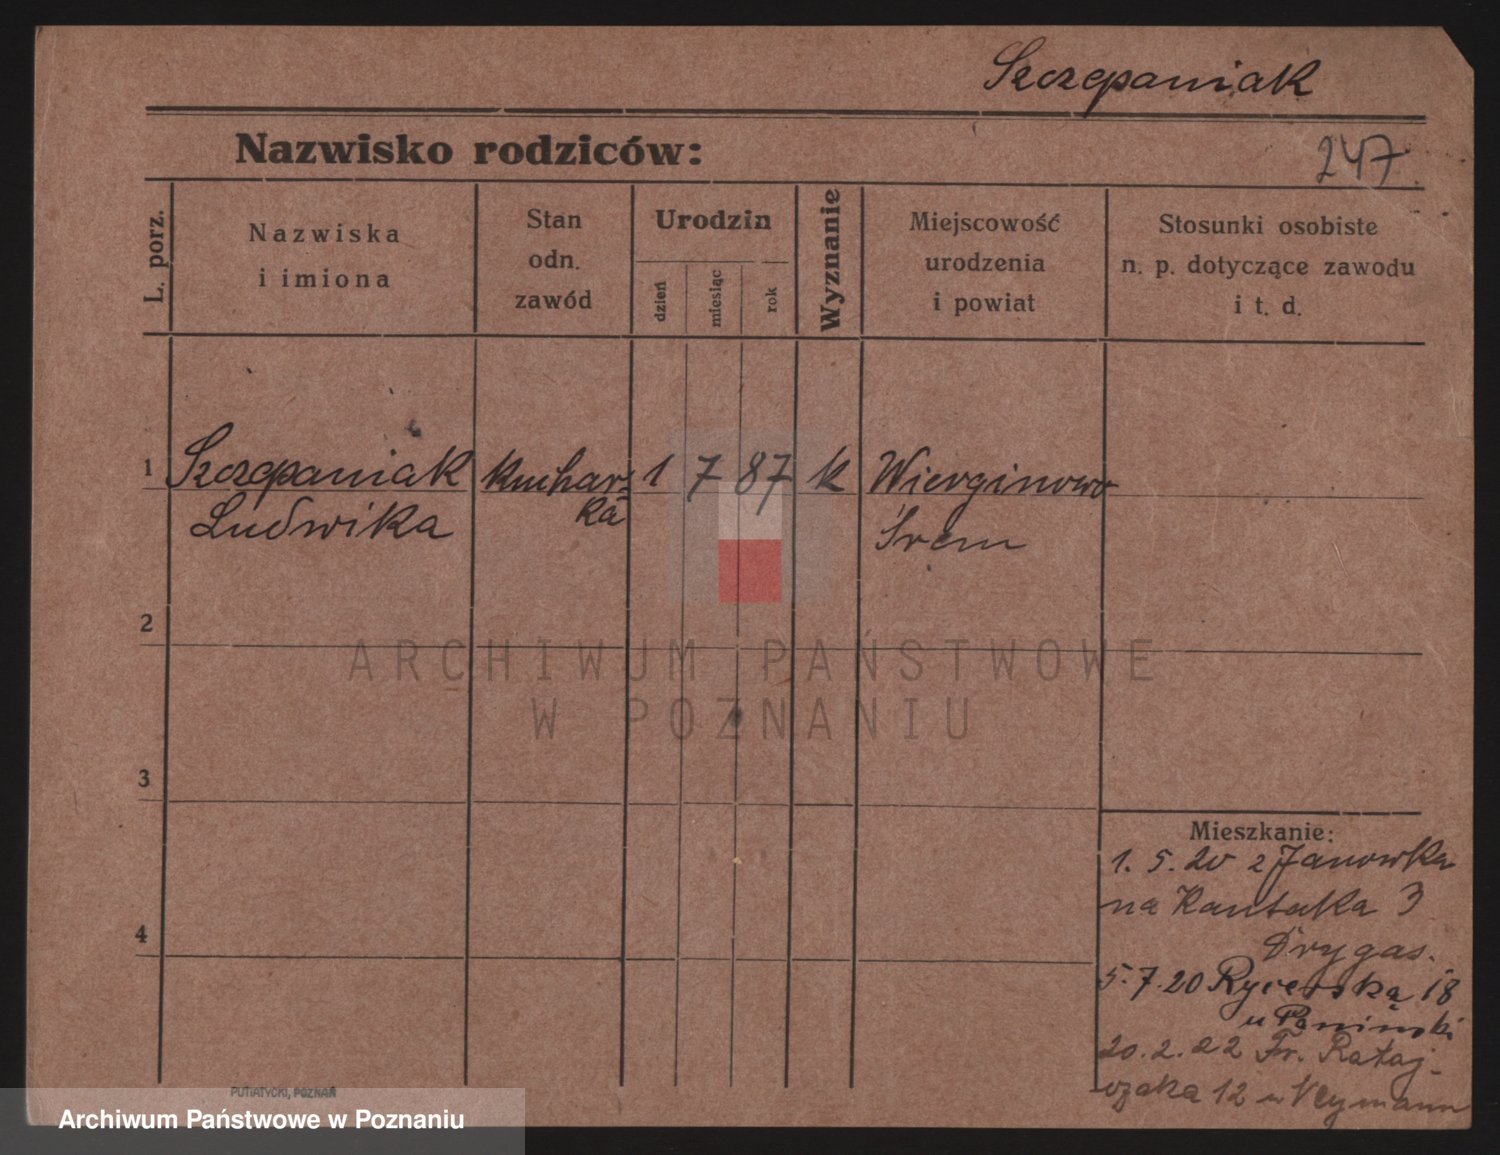 Szczepaniak
Nazwisko rodziców:
247
L. porz.
Nazwiska
i imiona
Stan
odn.
zawód
Urodzin
dzień
miesiąc
rok
Wyznanie
Miejscowość
urodzenia
i powiat
Stosunki osobiste
n. p. dotyczące zawodu
i t. d.
1 Szczepaniak kuchar- 1 7 87 k Wierginowo
Ludwika ka Śrem
2
3
4
Mieszkanie:
1. 5. 20 z Janowka
na Kantaka 3
Drygas.
5.7.20 Rycerska 18
u Paniński
20.2.22 Fr. Rataj-
czaka 12 u Weymann
PUTIATYCKI, POZNAŃ
ARCHIWUM PAŃSTWOWE
W POZNANIU
Archiwum Państwowe w Poznaniu